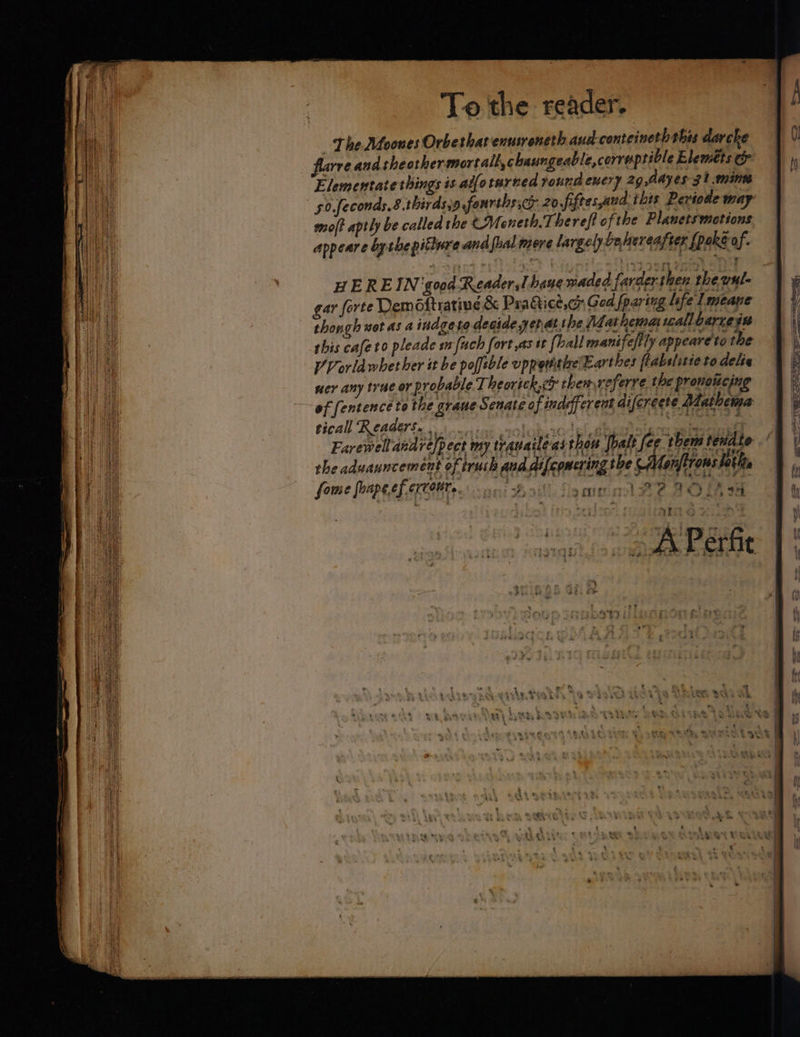 To the reader.
The Moones Orbe that enuironeth and conteineth this darcke
starre and the other mortall, chaungeable, corruptible Elemẽts &
Elementate things is also turned round euery 29. dayes 31. minu
50. seconds. 8. thirds, 9. fourths, & 20. fiftes, and this Periode may
most aptly be called the Moneth. The rest of the Planets motions
appeare by the picture and shal more largely be hereafter spoke of.
HEREIN good Reader, I haue waded farder then the vul-
gar sorte Demõstratiuè & Practicè, & God sparing life I meane
though not as a iudge to decide, yet at the Mathematicall barre in
this case to pleade in such sort, as it shall manifestly appeare to the
VVorld whether it be possible vppon the Earthes stabilitie to deli
uer any true or probable Theorick, & then referre the pronoūcing
of sentence to the graue Senate of indifferent discreete Mathema
ticall Readers.
Farewell and respect my trauaile as thou shalt see them tend to
the aduauncement of truth and discouering the Monstrous lothsome
some shape of errour.
A Perfit